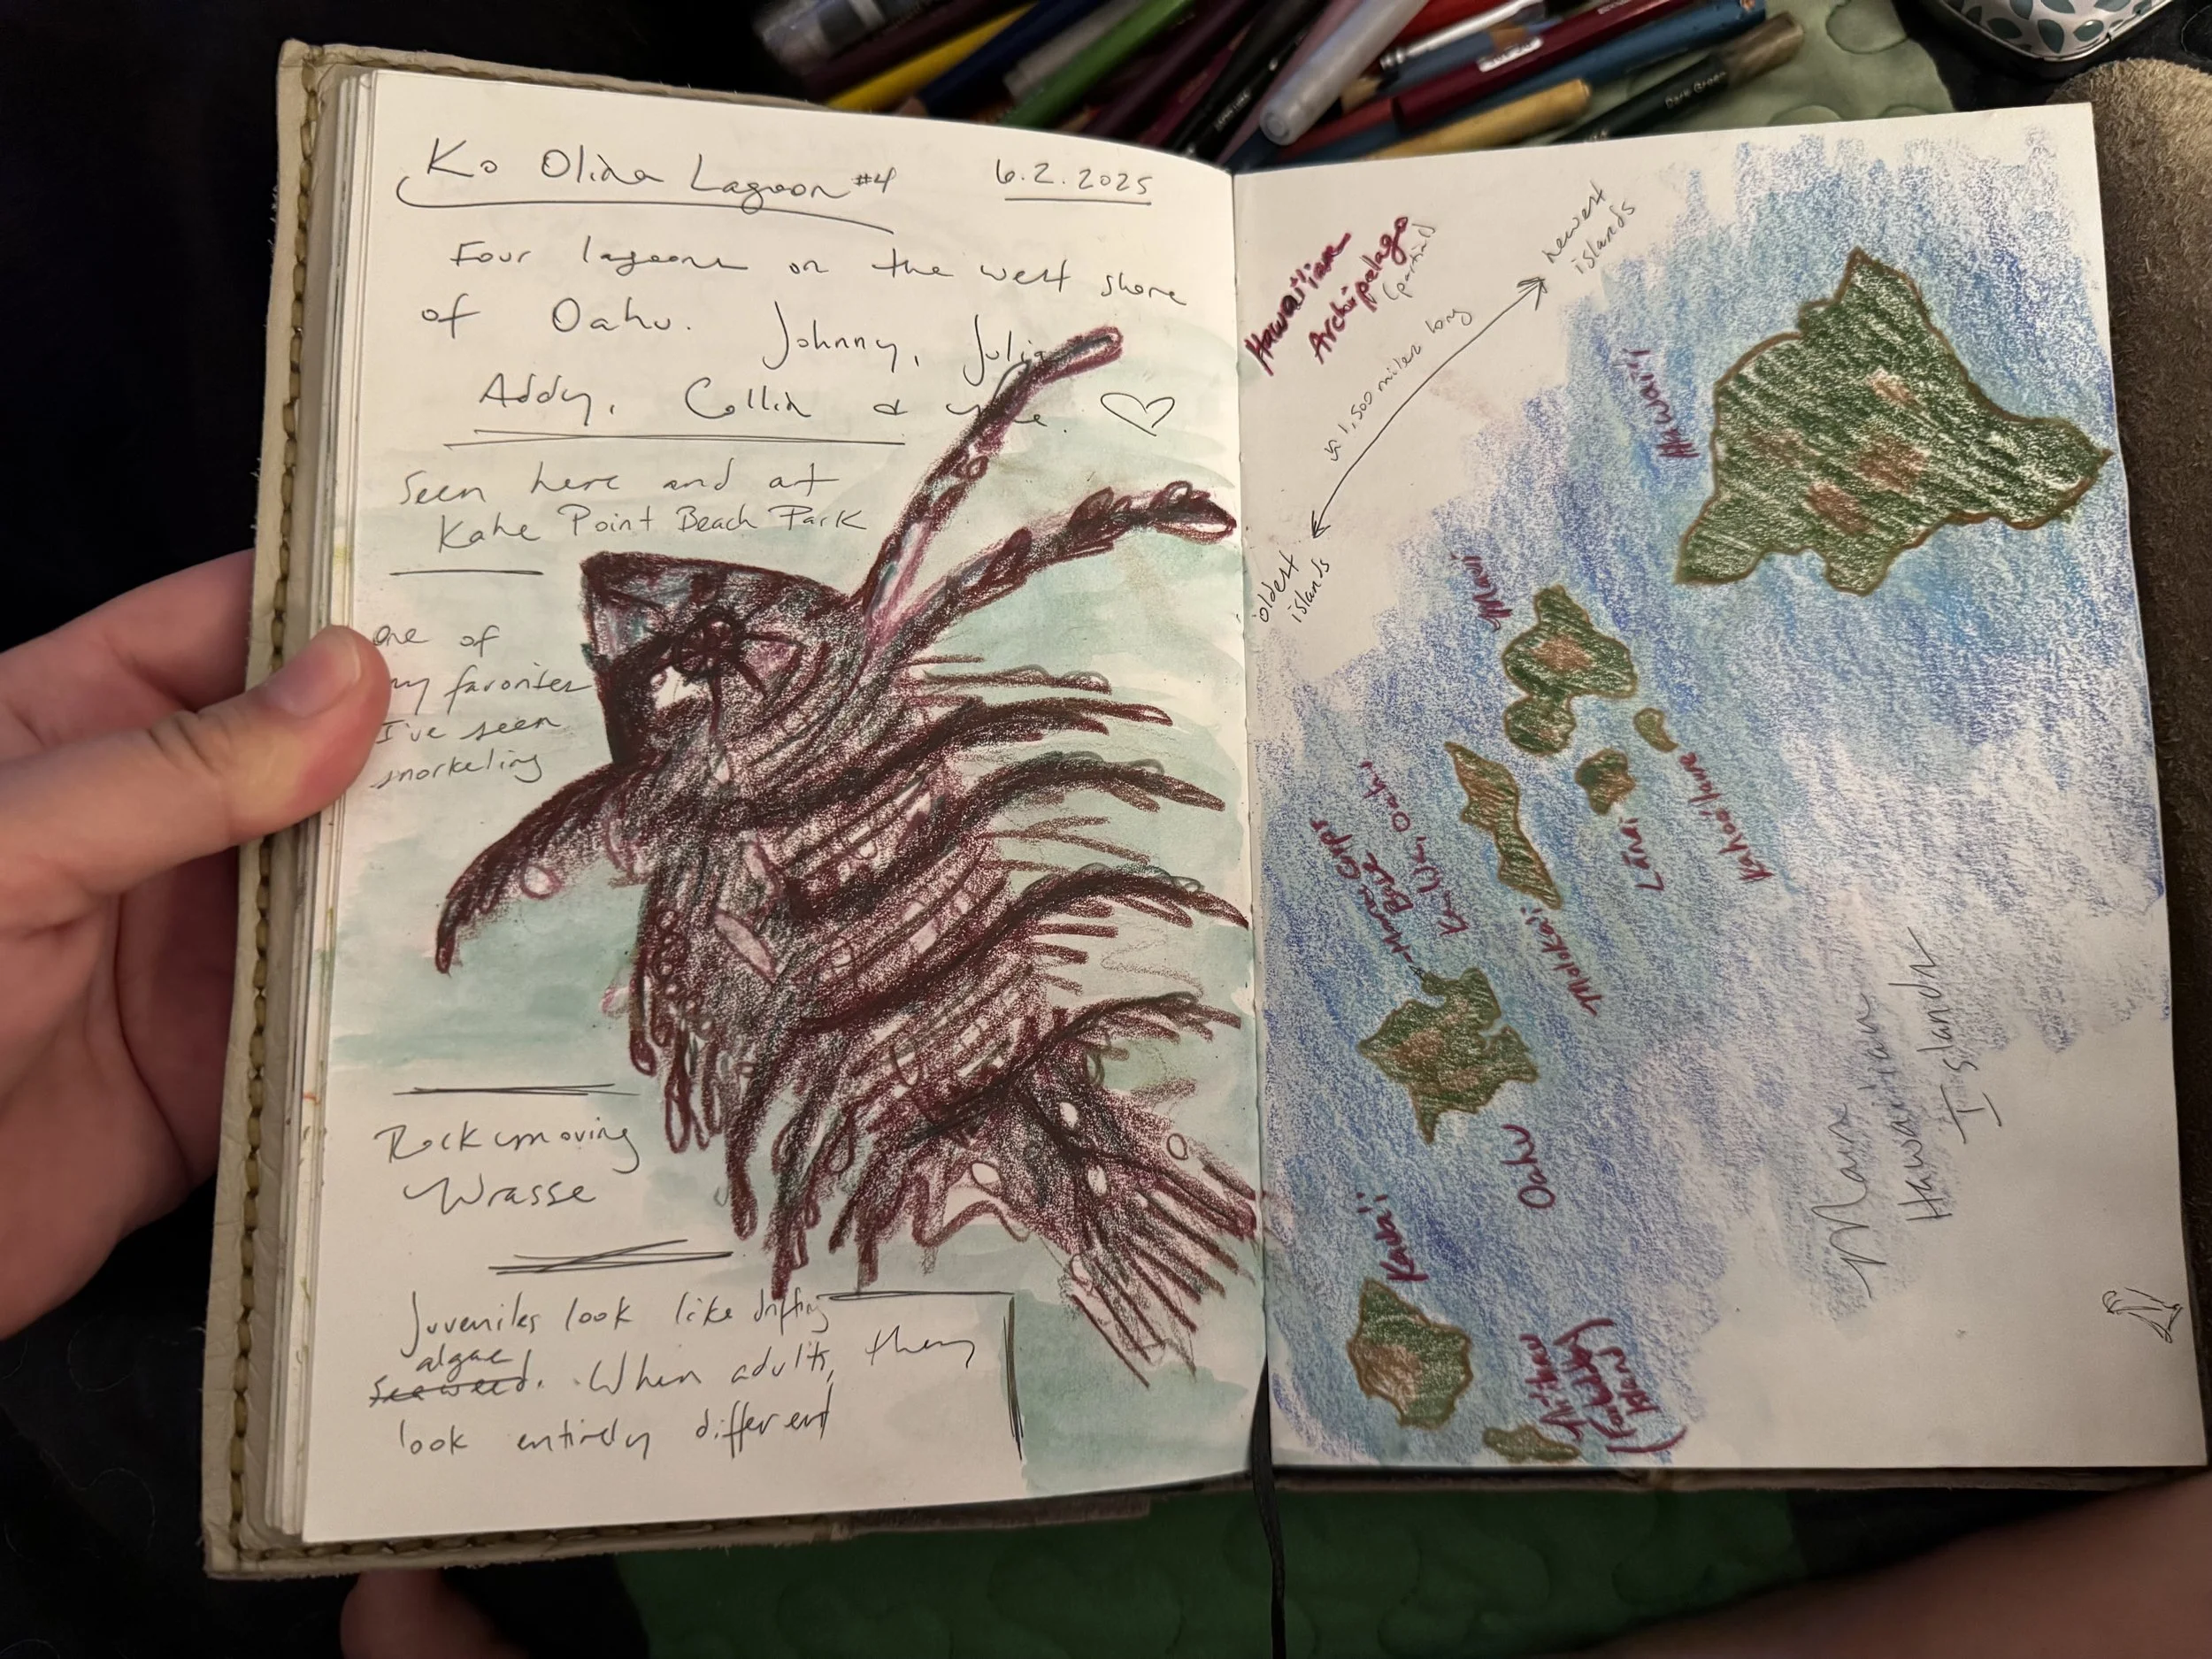 Ko Olina Lagoon #4 6.2.2025
Four lagoons on the west shore
of Oahu. Johnny, Julia
Addy, Collin & me. ♡
Seen here and at
Kahe Point Beach Park
One of
my favorites
I've seen
snorkeling
Rockmoving
Wrasse
Juveniles look like drifting
algae
seaweed. When adults, they
look entirely different
Hawaiian
Archipelago
(partial)
newest
islands
≈ 1,500 miles long
oldest
islands
Hawai'i
Maui
Kaho'olawe
Lānai
Molokai'i
Home
Base
Kailua, Oahu
Oahu
Kaua'i
Ni'ihau
(Forbidden
Island)
Main
Hawaiian
Islands
Dark Green